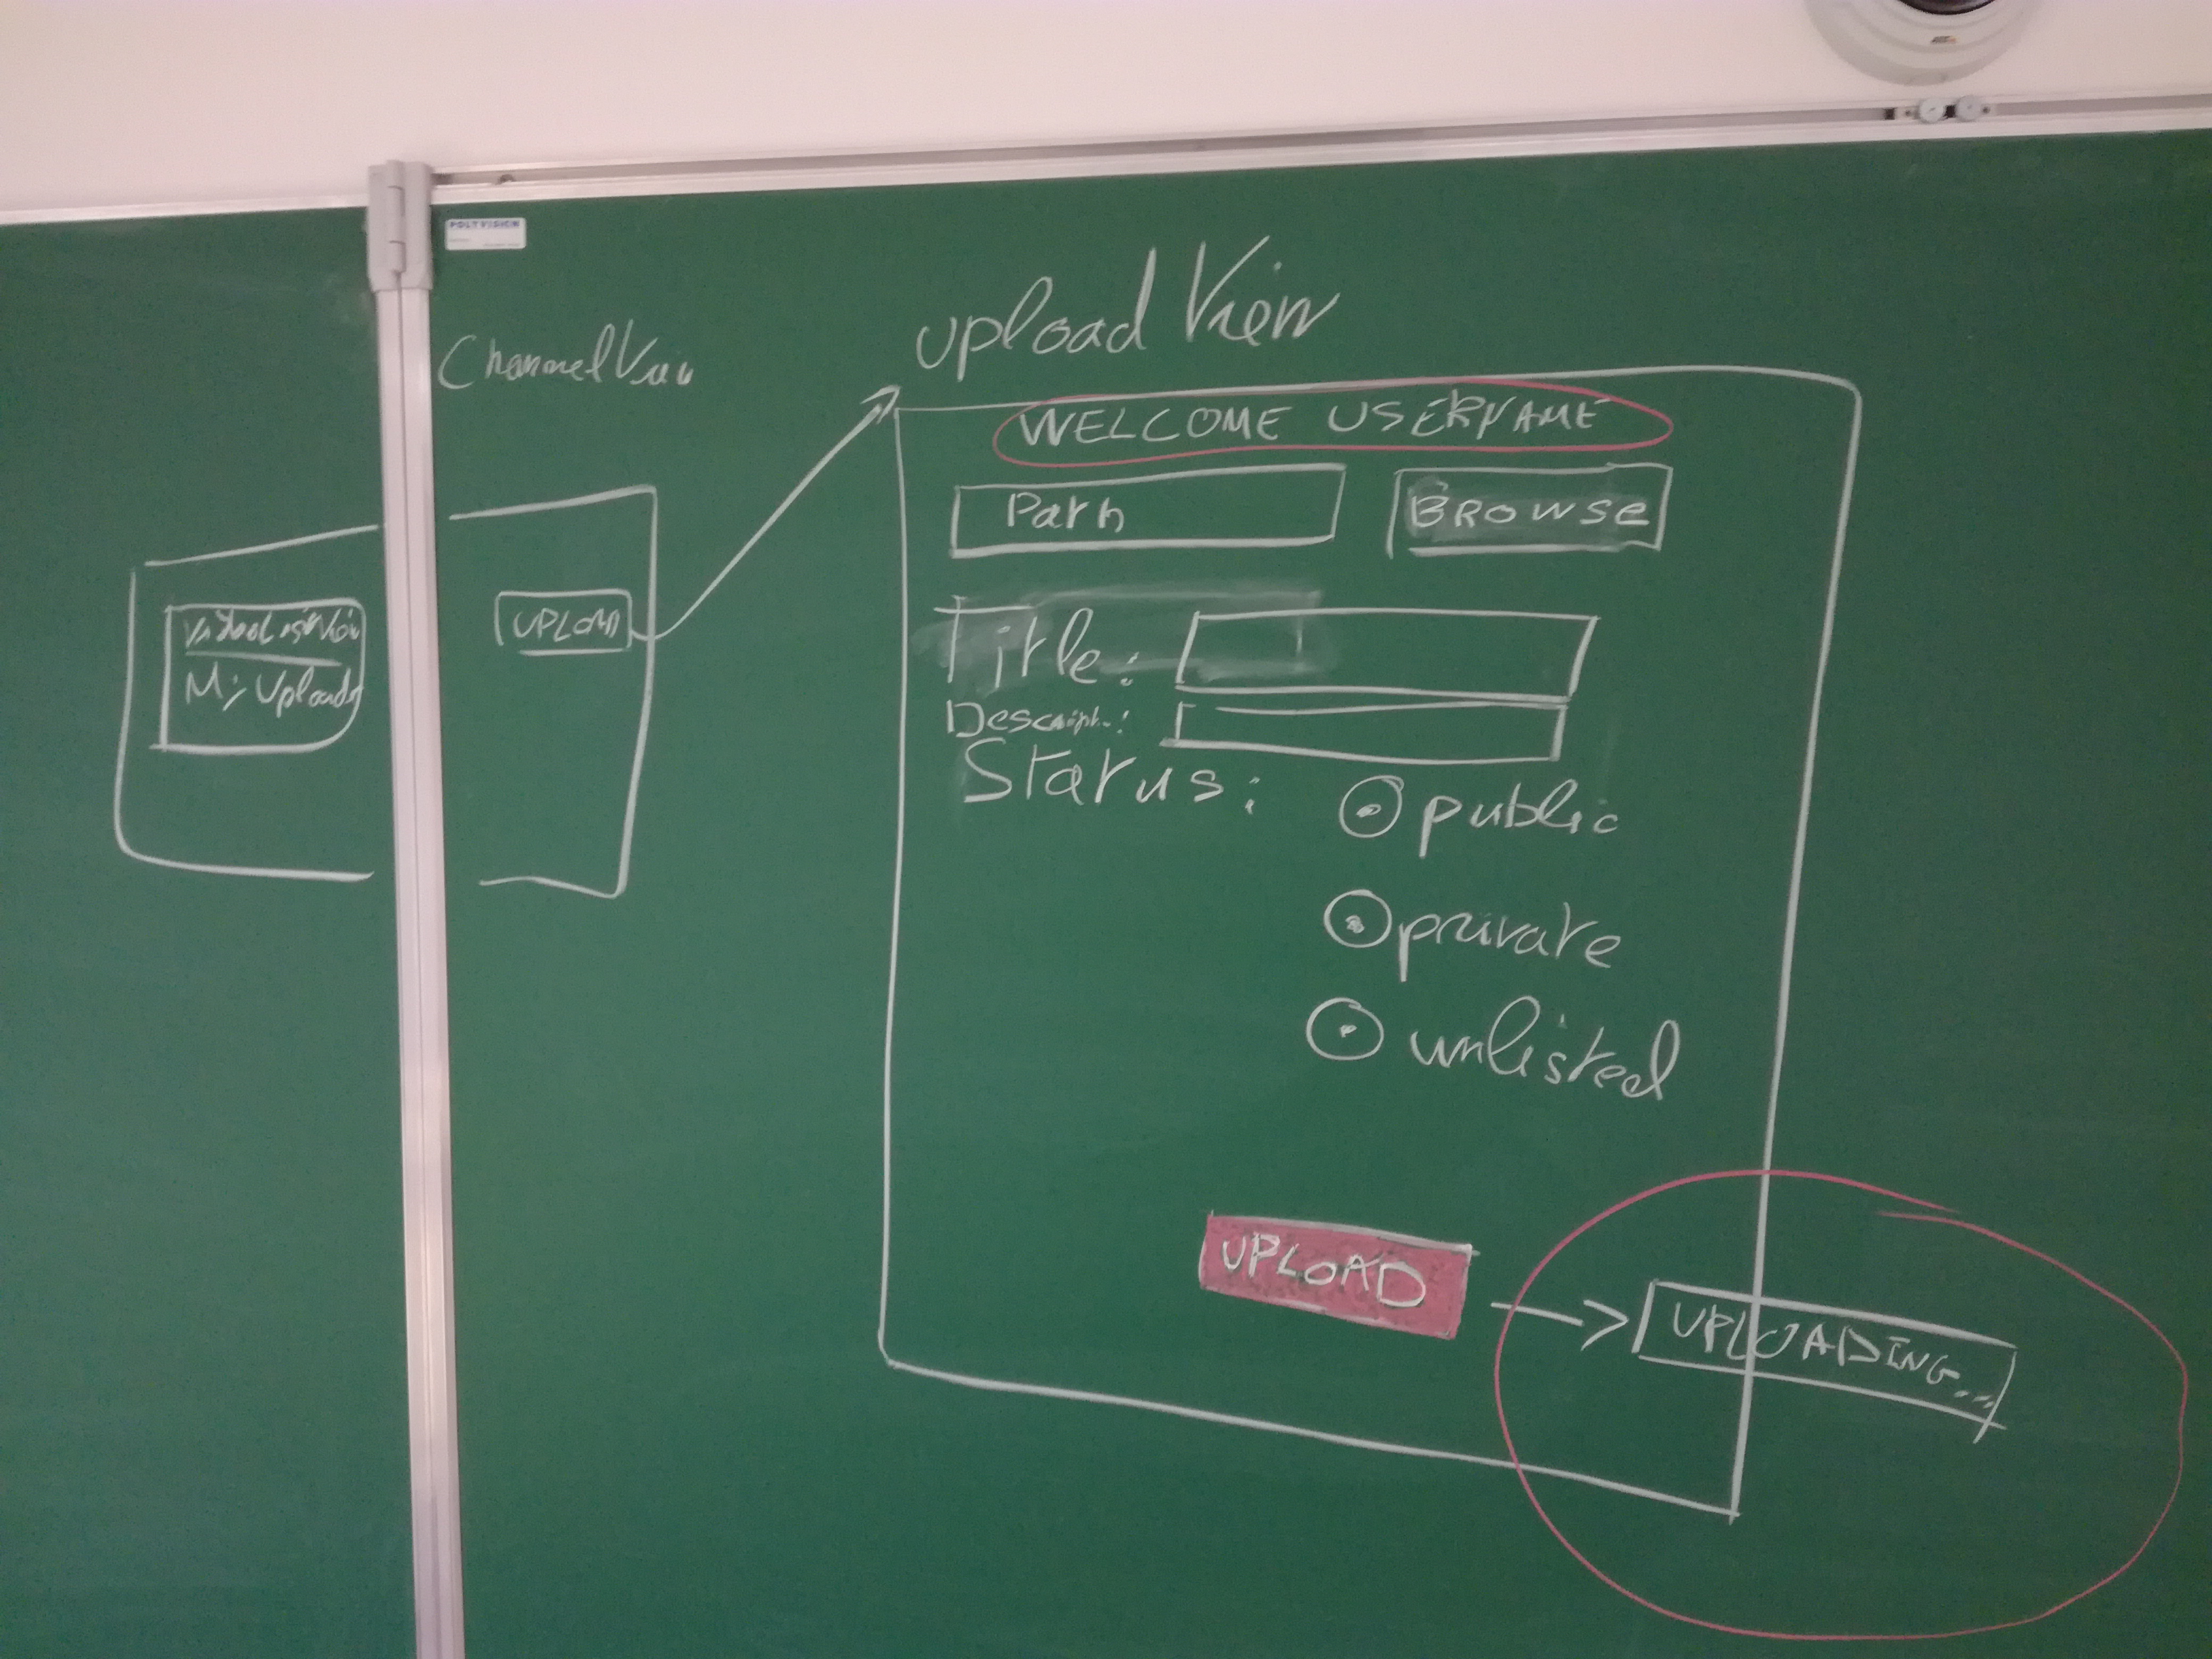 POLYVISION
ChannelView
VideoListView
My Uploads
UPLOAD
upload View
WELCOME USERNAME
Path
BROWSE
Title:
Descript.:
Status:
public
private
unlisted
UPLOAD
UPLOADING...